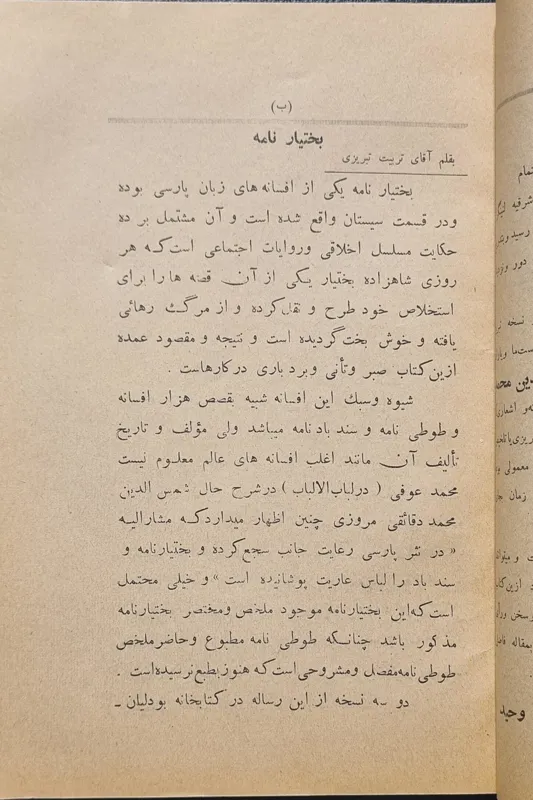 (ب)
بختیار نامه
بقلم آقای تربیت تبریزی
بختیار نامه یکی از افسانه های زبان پارسی بوده
ودر قسمت سیستان واقع شده است و آن مشتمل بر ده
حکایت مسلسل اخلاقی وروایات اجتماعی است که هر
روزی شاهزاده بختیار یکی از آن قصه ها را برای
استخلاص خود طرح و نقل کرده و از مرگ رهائی
یافته و خوش بخت گردیده است و نتیجه و مقصود عمده
ازین کتاب صبر وتأنی وبرد باری در کارهاست .
شیوه وسبك این افسانه شبیه بقصص هزار افسانه
و طوطی نامه و سند بادنامه میباشد ولی مؤلف و تاریخ
تألیف آن مانند اغلب افسانه های عالم معلوم نیست
محمد عوفی ( در لباب الالباب ) در شرح حال شمس الدین
محمد دقائقی مروزی چنین اظهار میدارد که مشارالیه
« در نثر پارسی رعایت جانب سجع کرده و بختیارنامه و
سند باد را لباس عاریت پوشانیده است » و خیلی محتمل
است که این بختیارنامه موجود ملخص ومختصر بختیارنامه
مذکور باشد چنانکه طوطی نامه مطبوع وحاضر ملخص
طوطی نامه مفصل ومشروحی است که هنوز بطبع نرسیده است .
دو سه نسخه از این رساله در کتابخانه بودلیان ـ
تمام
شرفیه
رسید
دور
نسخه
ین محمد
اشعاری
معمولی
زمان
وحید